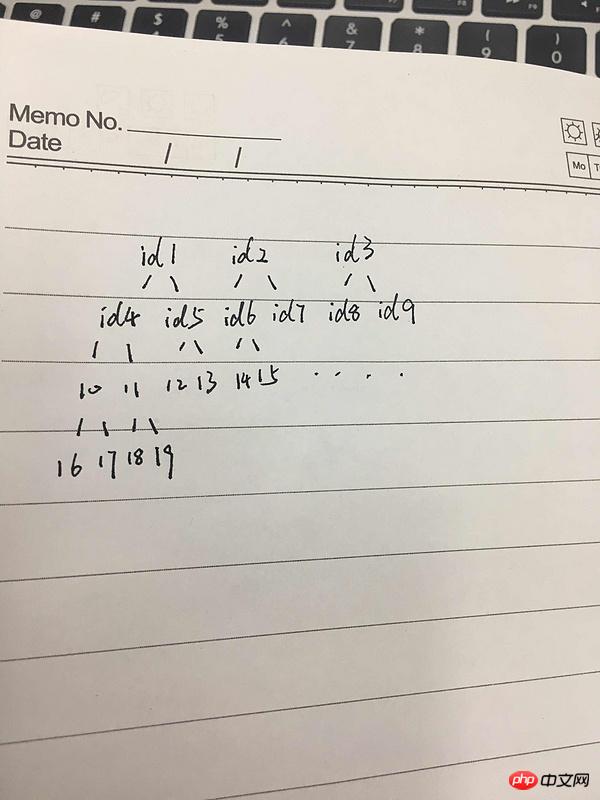 @ # $ % ^ & * ( )
4 5 6 7 8 9 0
Memo No.
Date / /
Mo T
id1 id2 id3
id4 id5 id6 id7 id8 id9
10 11 12 13 14 15 . . . .
16 17 18 19
php 中文网